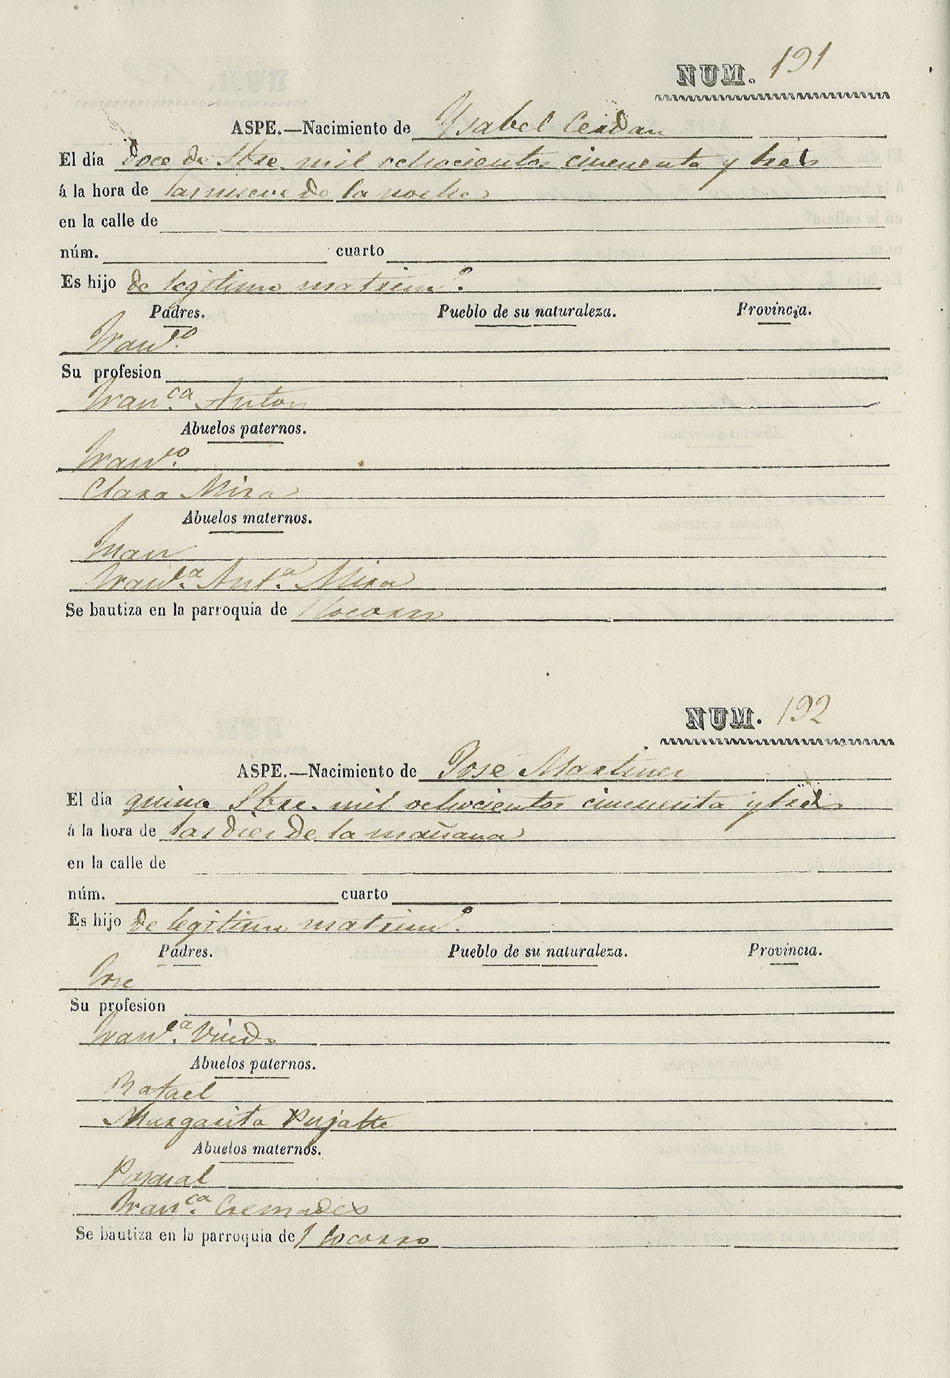 NUM. 191
ASPE.—Nacimiento de Ysabel Cerdan
El día doce de Sbre. mil ochocientos cincuenta y tres
á la hora de las nueve de la noche
en la calle de
núm. cuarto
Es hijo de legitimo matrim.º
Padres. Pueblo de su naturaleza. Provincia.
Fran.co
Su profesion
Fran.ca Anton
Abuelos paternos.
Fran.co
Clara Mira
Abuelos maternos.
Juan
Fran.ca Ant.a Mira
Se bautiza en la parroquia de Socorro
NUM. 192
ASPE.—Nacimiento de Jose Martinez
El día quince Sbre. mil ochocientos cincuenta y tres
á la hora de las diez de la mañana
en la calle de
núm. cuarto
Es hijo de legitimo matrim.º
Padres. Pueblo de su naturaleza. Provincia.
Jose
Su profesion
Fran.ca
Abuelos paternos.
Rafael
Margarita Pujalte
Abuelos maternos.
Pasqual
Fran.ca Cremades
Se bautiza en la parroquia de Socorro